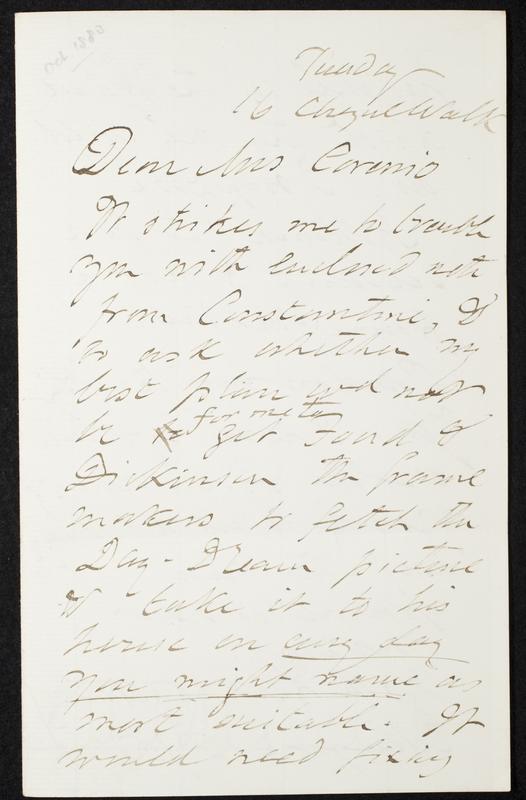 Oct 1880
Tuesday
16 Cheyne Walk
Dear Mrs Coronio
It strikes me to trouble
you with enclosed note
from Constantine, &
to ask whether my
best plan wd not
be for me to get Foord &
Dickinson the frame
makers to fetch the
Day-Dream picture
& take it to his
house on any day
you might name as
most suitable. It
would need fixing